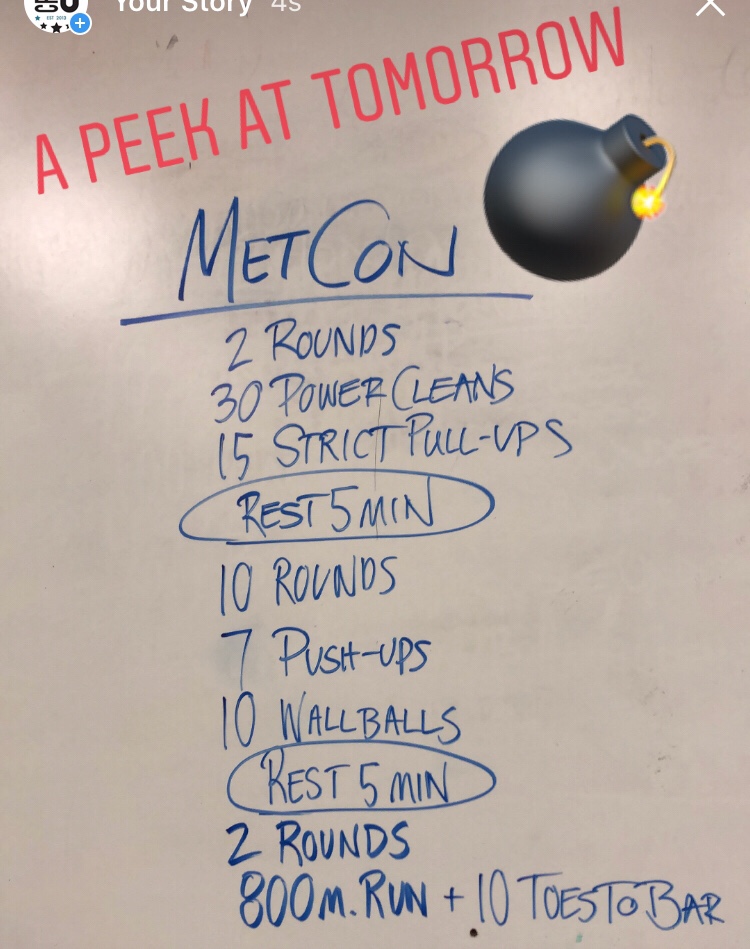 Your Story 4s
EST 2013
A PEEK AT TOMORROW
METCON
2 ROUNDS
30 POWER CLEANS
15 STRICT PULL-UPS
REST 5 MIN
10 ROUNDS
7 PUSH-UPS
10 WALLBALLS
REST 5 MIN
2 ROUNDS
800M. RUN + 10 TOES TO BAR